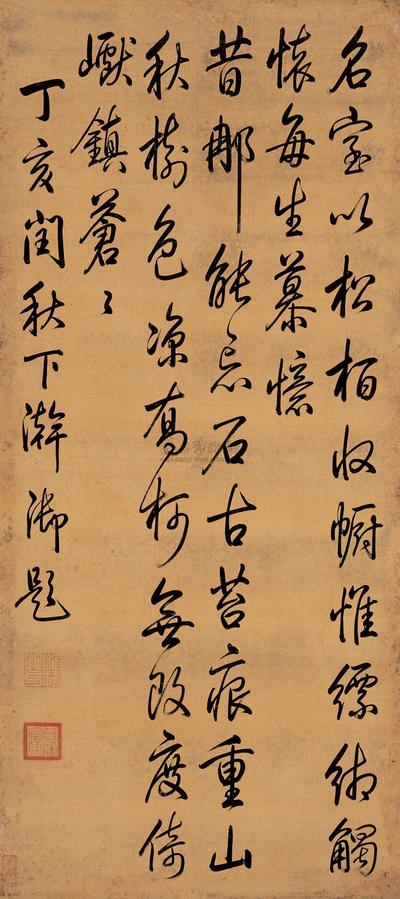 名室以松柏收幮惟縹緗觸
懷每生慕憶
昔那能忘石古苔痕重山
秋樹色涼喬柯無改度倚
巘鎮蒼〻
丁亥閏秋下澣御題